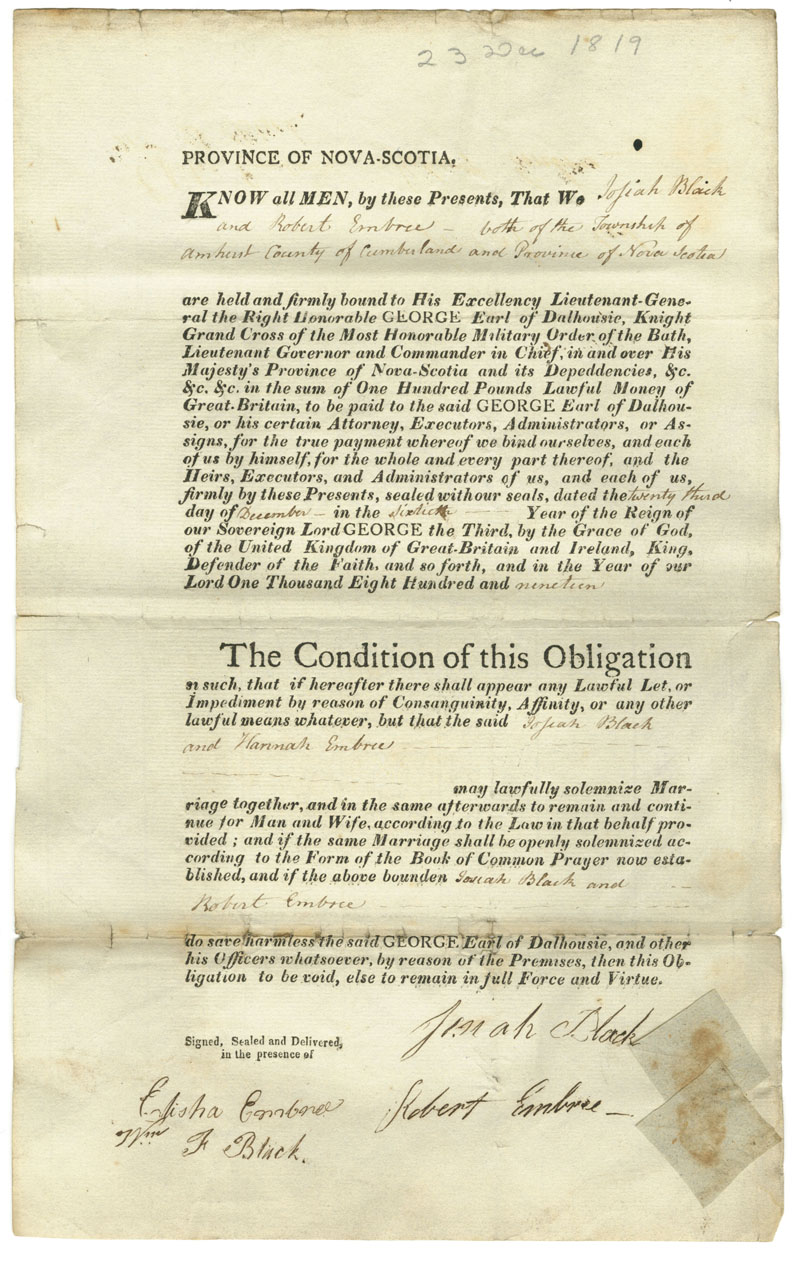 23 Dec 1819
PROVINCE OF NOVA-SCOTIA.
KNOW all MEN, by these Presents, That We Josiah Black
and Robert Embree – both of the Township of
Amherst County of Cumberland and Province of Nova Scotia
are held and firmly bound to His Excellency Lieutenant-Gene-
ral the Right Honorable GEORGE Earl of Dalhousie, Knight
Grand Cross of the Most Honorable Military Order of the Bath,
Lieutenant Governor and Commander in Chief, in and over His
Majesty's Province of Nova-Scotia and its Depeddencies, &c.
&c. &c. in the sum of One Hundred Pounds Lawful Money of
Great-Britain, to be paid to the said GEORGE Earl of Dalhou-
sie, or his certain Attorney, Executors, Administrators, or As-
signs, for the true payment whereof we bind ourselves, and each
of us by himself, for the whole and every part thereof, and the
Heirs, Executors, and Administrators of us, and each of us,
firmly by these Presents, sealed with our seals, dated the twenty third
day of December – in the sixtieth Year of the Reign of
our Sovereign Lord GEORGE the Third, by the Grace of God,
of the United Kingdom of Great-Britain and Ireland, King,
Defender of the Faith, and so forth, and in the Year of our
Lord One Thousand Eight Hundred and nineteen
The Condition of this Obligation
is such, that if hereafter there shall appear any Lawful Let, or
Impediment by reason of Consanguinity, Affinity, or any other
lawful means whatever, but that the said Josiah Black
and Hannah Embree
may lawfully solemnize Mar-
riage together, and in the same afterwards to remain and conti-
nue for Man and Wife, according to the Law in that behalf pro-
vided ; and if the same Marriage shall be openly solemnized ac-
cording to the Form of the Book of Common Prayer now esta-
blished, and if the above bounden Josiah Black and
Robert Embree
do save harmless the said GEORGE Earl of Dalhousie, and other
his Officers whatsoever, by reason of the Premises, then this Ob-
ligation to be void, else to remain in full Force and Virtue.
Josiah Black
Signed, Sealed and Delivered,
in the presence of
Elisha Embree
Robert Embree –
Wm F Black.